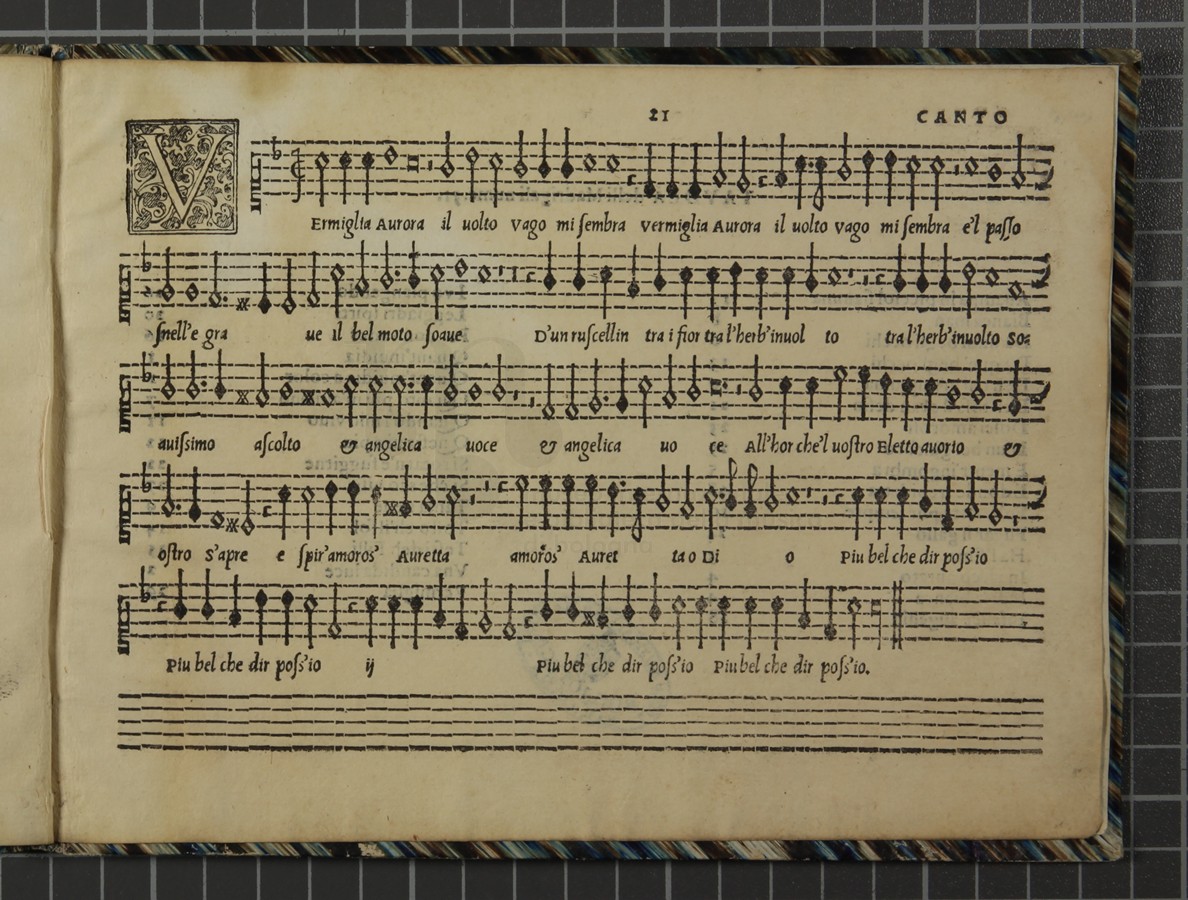 21 CANTO
VErmiglia Aurora il uolto vago mi ſembra vermiglia Aurora il uolto vago mi ſembra e'l paſſo
ſnell'e gra ue il bel moto ſoaue D'un ruſcellin tra i fior tra l'herb'inuol to tra l'herb'inuolto So:
auiſsimo aſcolto & angelica uoce & angelica uo ce All'hor che'l uoſtro Eletto auorio &
oſtro S'apre e ſpir'amoros' Auretta amoros' Auret ta o Di o Piu bel che dir poſs'io
Piu bel che dir poſs'io ij Piu bel che dir poſs'io Piu bel che dir poſs'io.